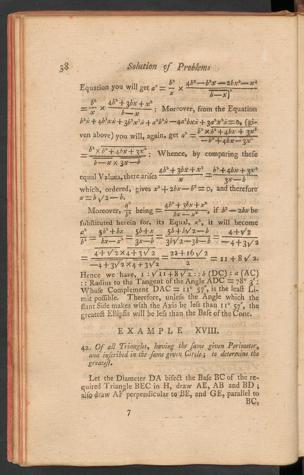 38 Solution of Problems
Equation you will get a² = b²/x × 4b³ − b²x − 2bx² − x³ / b − x)²
= b²/x × 4b² + 3bx + x² / b − x ; Moreover, from the Equation
ven above) you will, again, get a² = b² × b² + 4bx + 3x² / −b² + 4bx − 3x²
= b² × b² + 4bx + 3x² / b − x × 3x − b ; Whence, by comparing these
equal Values, there arises 4b² + 3bx + x² / x = b² + 4bx + 3x² / 3x − b
which, ordered, gives x² + 2bx − b² = 0, and therefore
x = b√2 − b.
Moreover, being = , if b² − 2bx be
substituted herein for, its Equal, x², it will become
a²/b² = 5b² + bx / bx − x² = 5b + x / 3x − b = 5b + b√2 − b / 3b√2 − 3b − b = 4 + √2 / −4 + 3√2
= 4 + √2 × 4 + 3√2 / −4 + 3√2 × 4 + 3√2 = 22 + 16√2 / 2 = 11 + 8√2.
Hence we have, 1 : √11 + 8√2 :: b (DC) : a (AC)
:: Radius to the Tangent of the Angle ADC = 78° 3′:
Whose Complement DAC = 11° 57′, is the least Li-
mit possible. Therefore, unless the Angle which the
slant Side makes with the Axis be less than 11° 57′, the
greatest Ellipsis will be less than the Base of the Cone.
EXAMPLE XVIII.
42. Of all Triangles, having the same given Perimeter,
and inscribed in the same given Circle; to determine the
greatest.
Let the Diameter DA bisect the Base BC of the re-
quired Triangle BEC in H, draw AE, AB and BD ;
also draw AF perpendicular to BE, and GE, parallel to
BC,
7